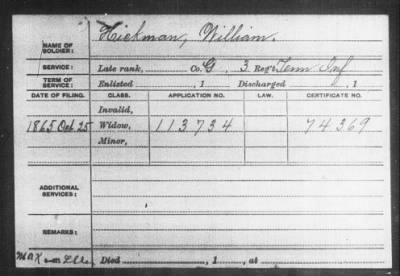 NAME OF SOLDIER: Hickman, William.
SERVICE: Late rank, Co. G, 3 Reg't Tenn Inf
TERM OF SERVICE: Enlisted , 1 Discharged , 1
DATE OF FILING. CLASS. APPLICATION NO. LAW. CERTIFICATE NO.
Invalid,
1865 Oct 25 Widow, 113734 74369
Minor,
ADDITIONAL SERVICES:
REMARKS:
Died , 1 , at